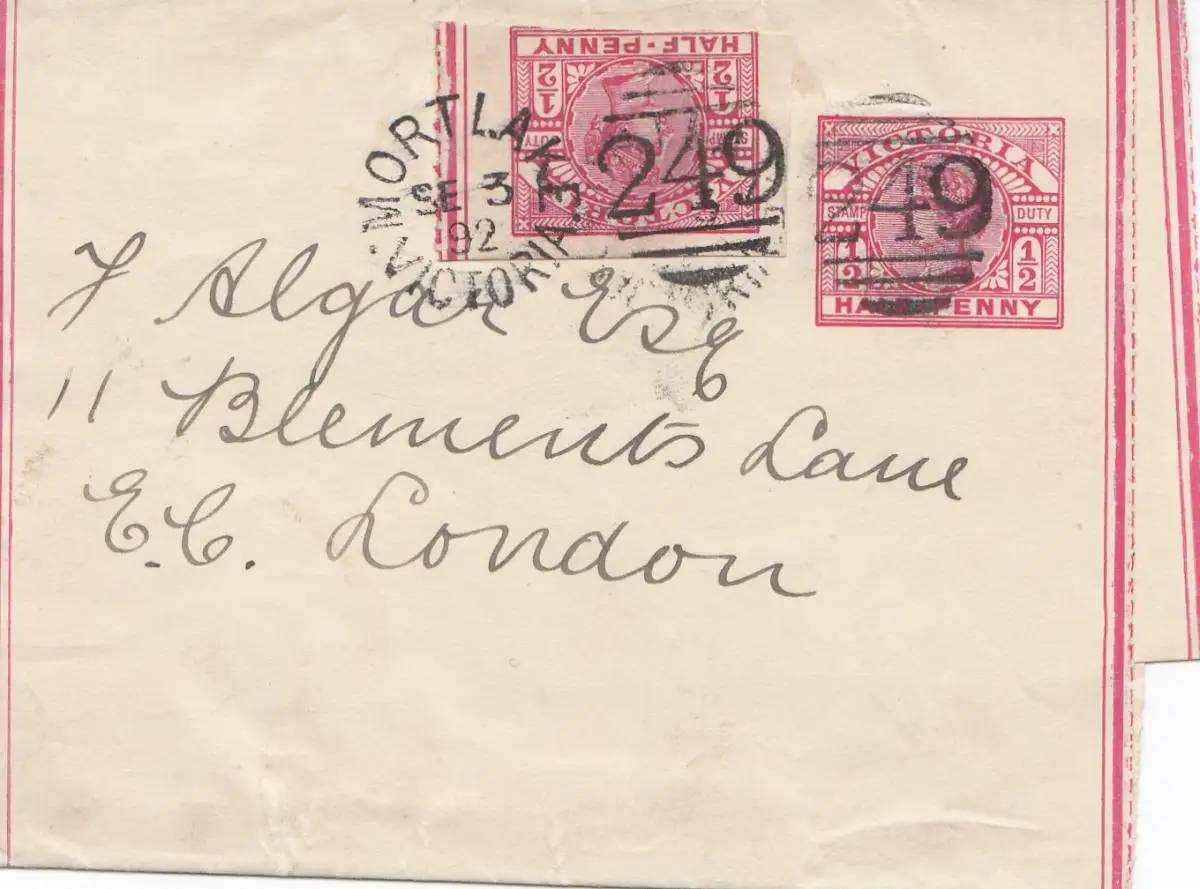 HALF-PENNY
1/2 1/2
STAMP DUTY
VICTORIA
249
MORTLAKE
SE 3
92
VICTORIA
VICTORIA
49
STAMP DUTY
1/2 1/2
HALF PENNY
F Algar Esq
11 Blements Lane
E.C. London